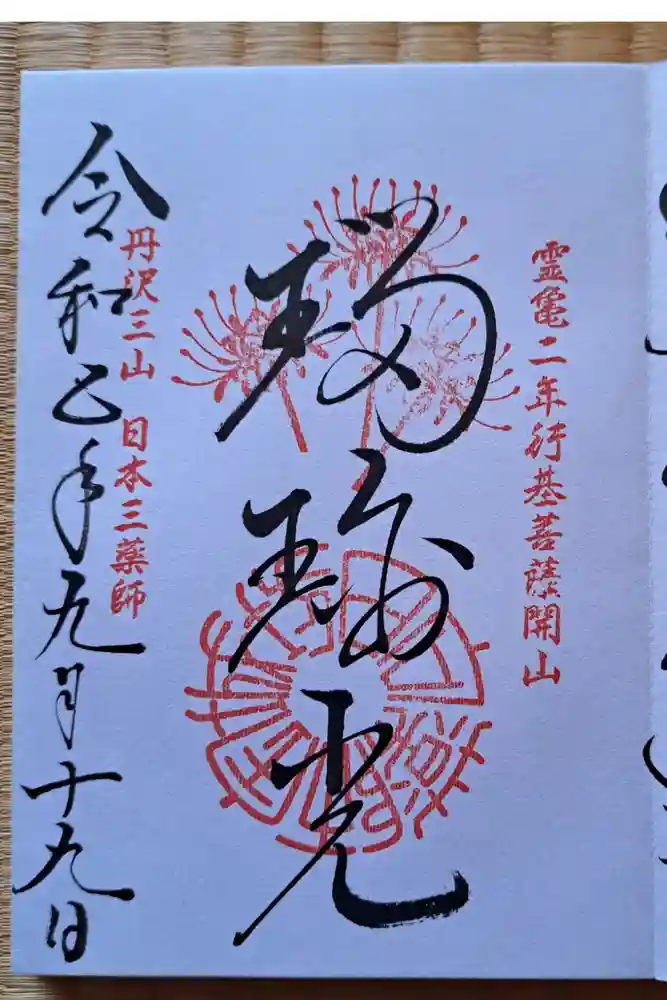 霊亀二年行基菩薩開山
瑠璃光
丹沢三山 日本三薬師
令和乙年九月十九日